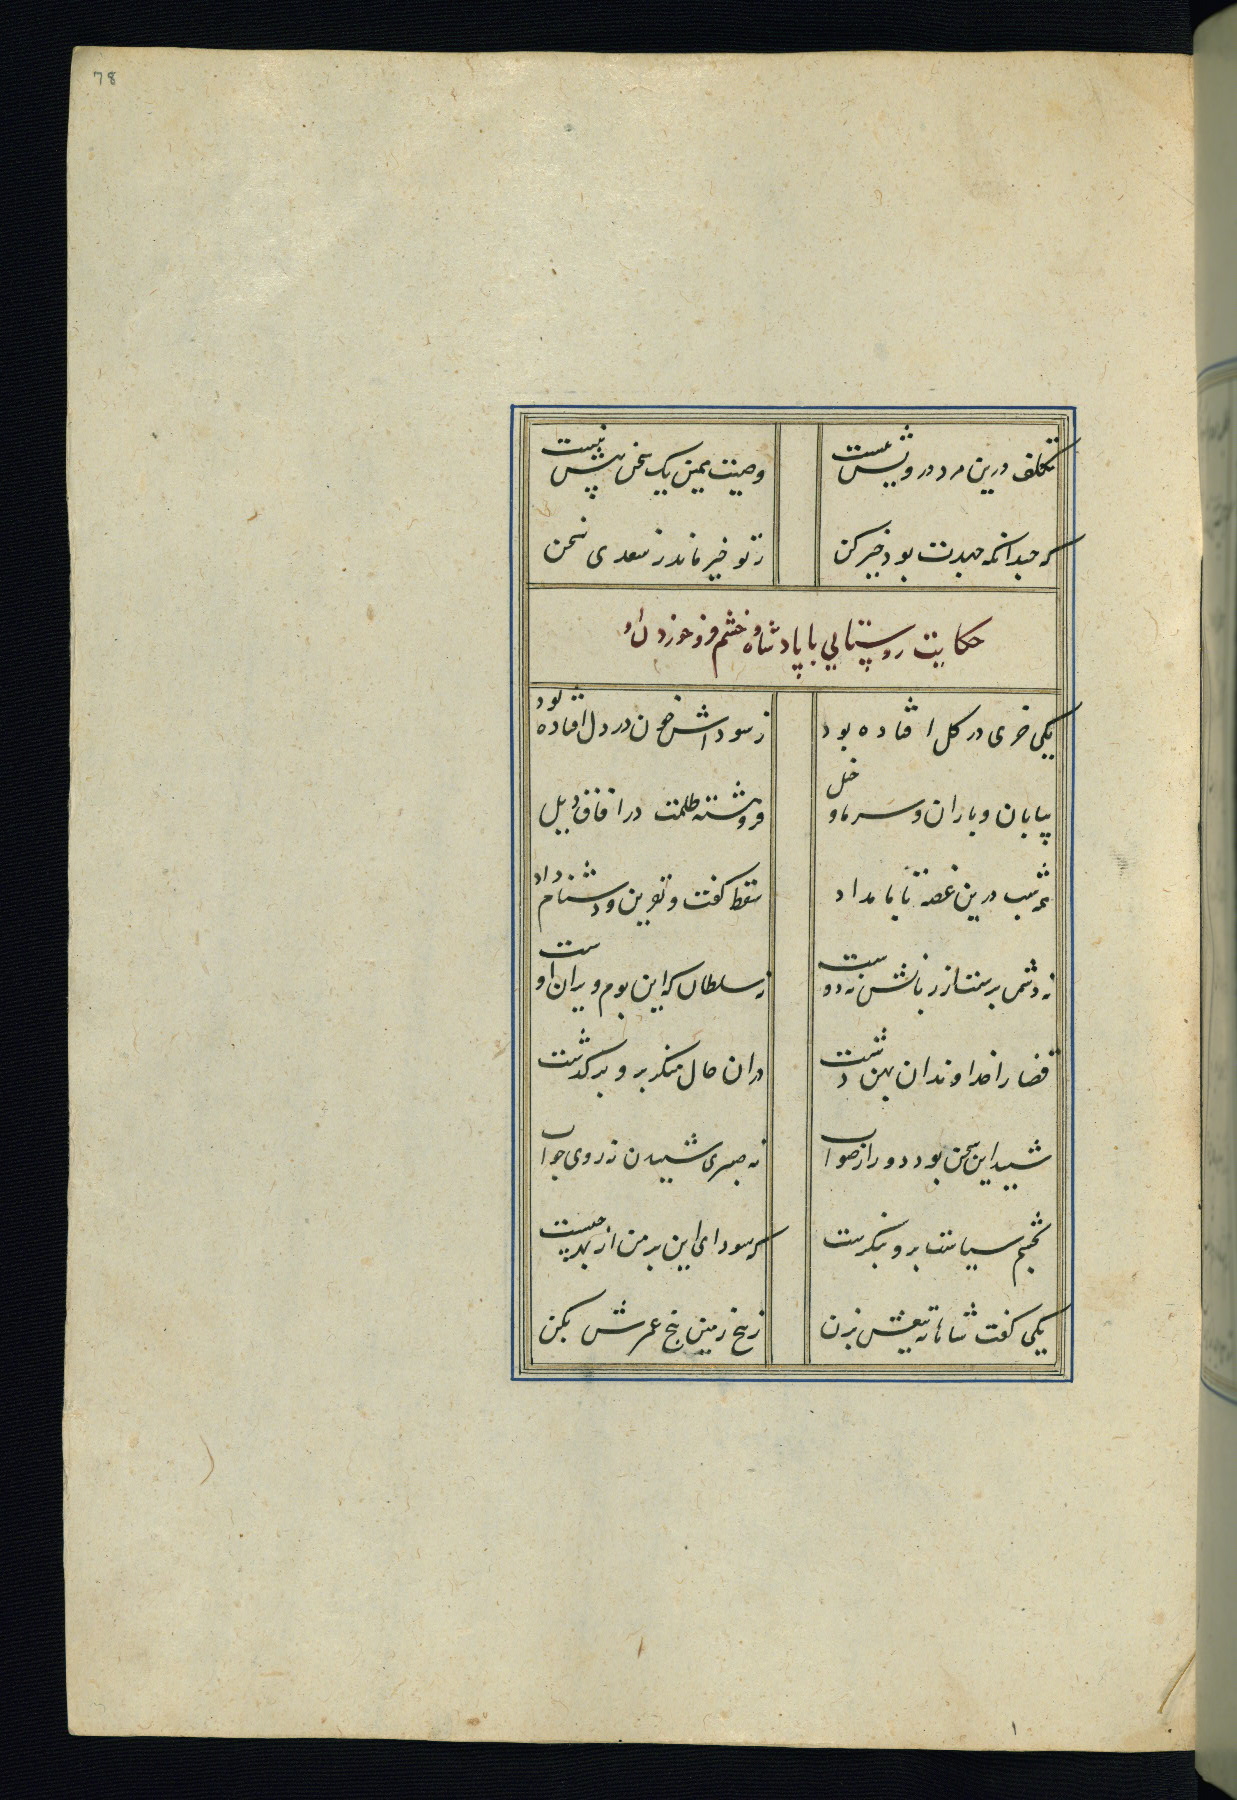 78
تکلف درین مرد درویش نیست
وصیت همین یک سخن بیش نیست
که چندانکه جهدت بود خیر کن
ز تو خیر ماند ز سعدی سخن
حکایت روستایی با پادشاه و خشم فرو خوردن او
یکی خری در کل افتاده بود
ز سوداش خون در دل افتاده بود
بیابان و باران و سرما و سیل
فروهشته ظلمت در آفاق ذیل
همه شب درین غصه تا بامداد
سقط کفت و نفرین و دشنام داد
نه دشمن برست از زبانش نه دوست
نه سلطان که این بوم ویران اوست
قضا را خداوند ان پهن دشت
در ان حال منکر برو برکذشت
شنید این سخن بود دور از صواب
نه صبر شنیدن نه روی جواب
بچشم سیاست برو بنکرست
که سودای این بر من از بهر چیست
یکی کفت شاها به تیغش بزن
ز بیخ زمین بیخ عمرش بکن
۱